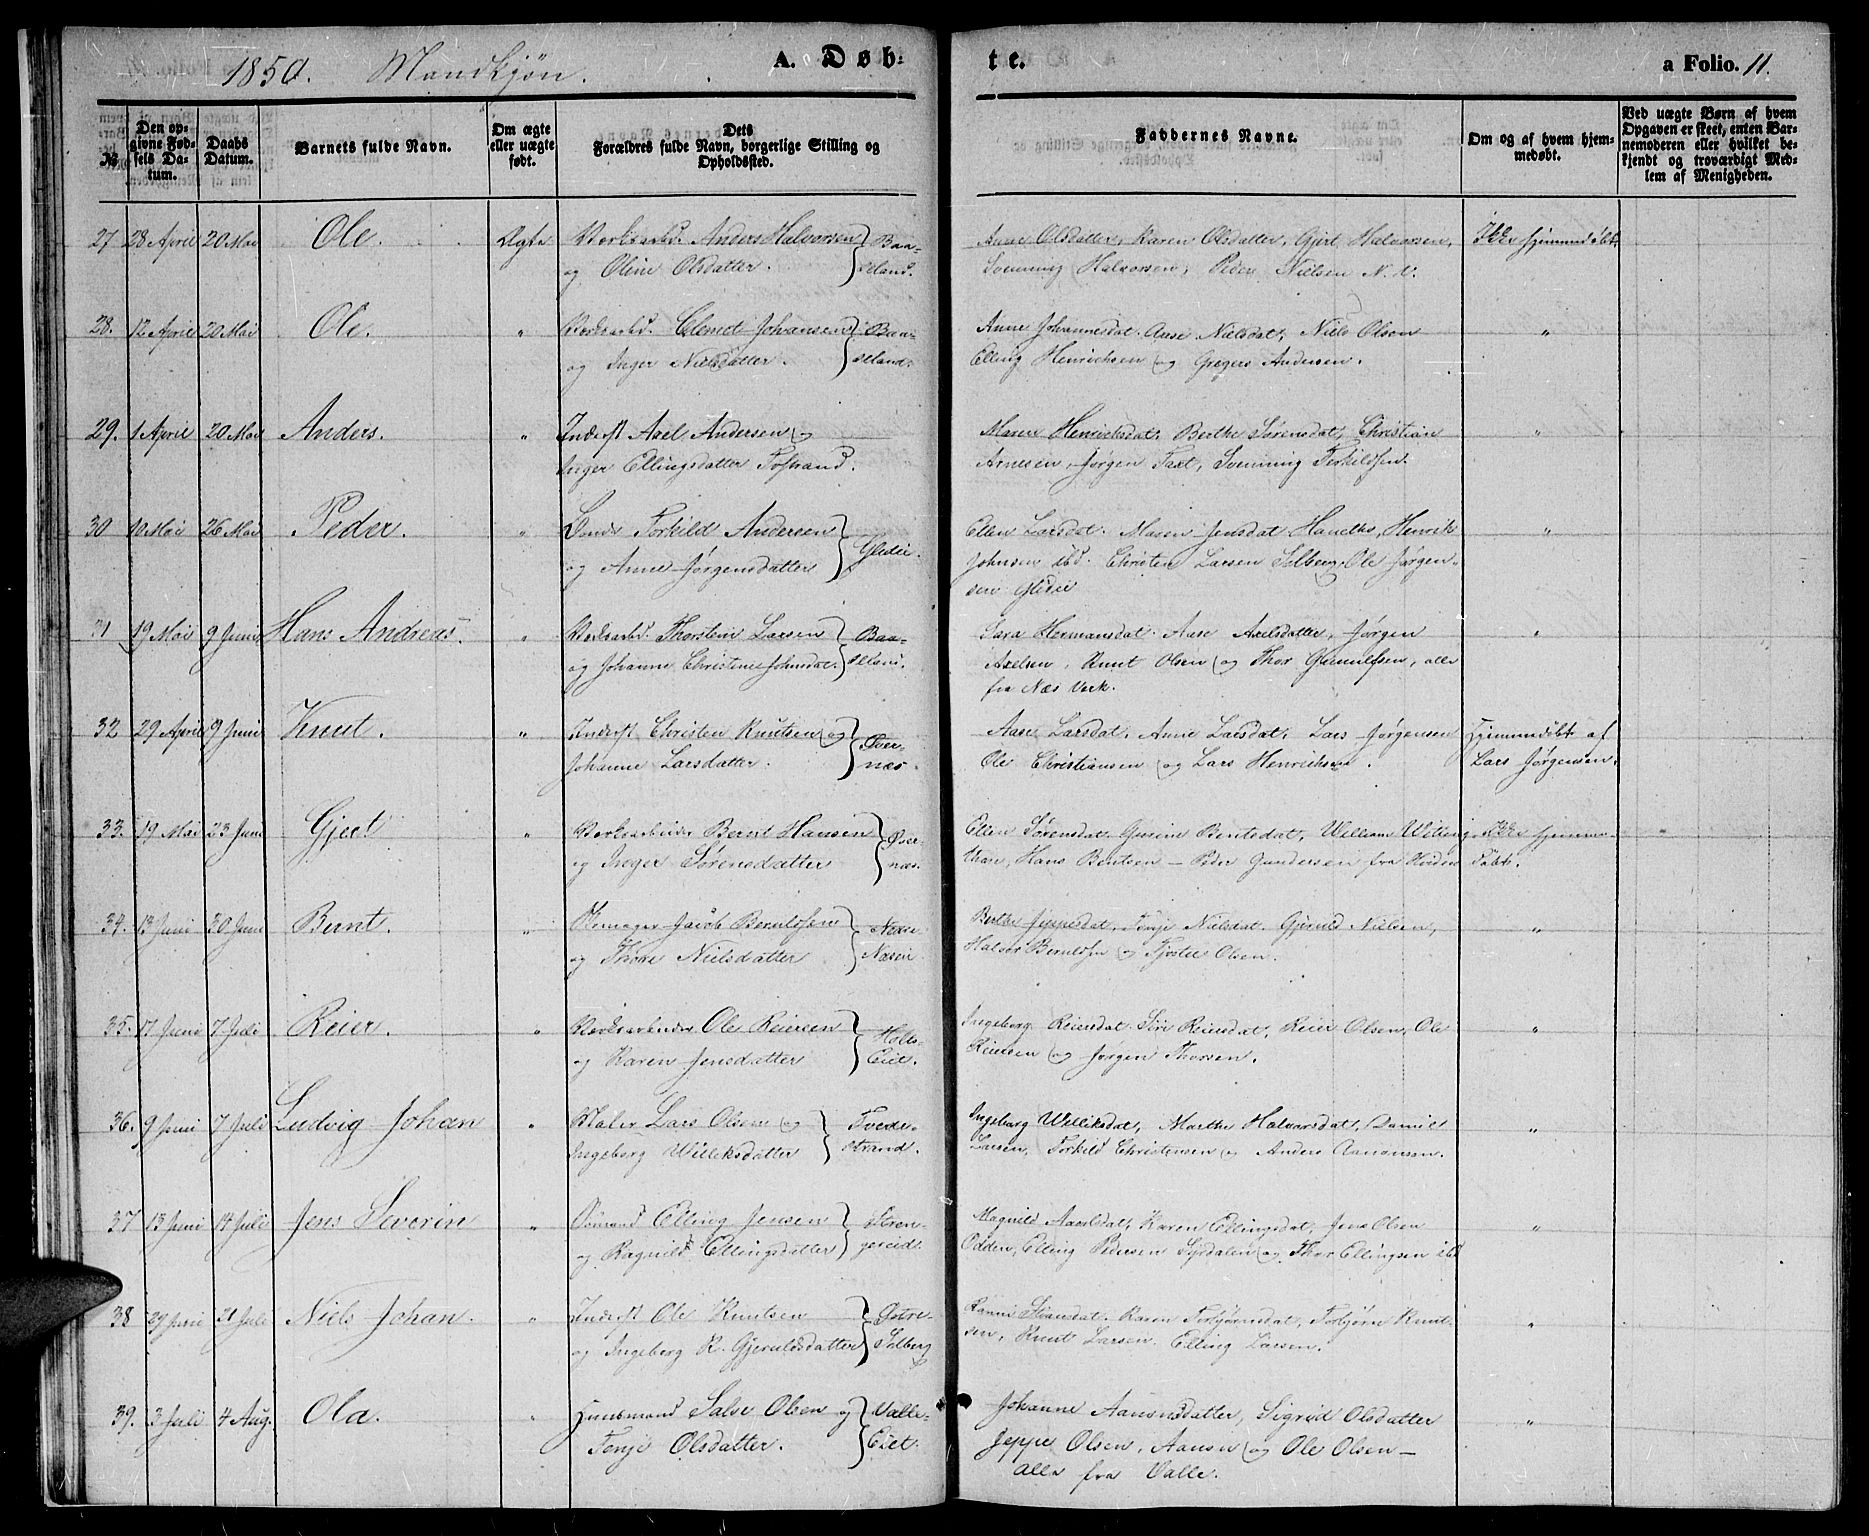 1850. Mandkjøn. A. Døb-
te. a Folio. 11.
No
Den op-
givne Fød-
sels Da-
tum.
Daabs
Datum.
Barnets fulde Navn.
Om ægte
eller uægte
født.
Dets
Forældres fulde Navn, borgerlige Stilling og
Opholdssted.
Faddernes Navne.
Om og af hvem hjem-
medøbt.
Ved uægte Børn af hvem
Opgaven er skeet, enten Bar-
nemoderen eller hvilket be-
kjendt og troværdigt Med-
lem af Menigheden.
27 28 April 20 Mai Ole. Ægte Verksarbd. Anders Halvorsen Baa-
og Oline Olsdatter. seland.
Anne Olsdatter, Karen Olsdatter, Gjert Halvorsen,
Svenning Halvorsen, Peder Nielsen N. V.
Ikke hjemmedøbt
28. 12 April 20 Mai Ole. " Verksarbd. Clemet Johansen Baa-
og Inger Nielsdatter. seland.
Anne Johannesdat. Aase Nielsdat, Niels Olsen
Elling Henrichsen og Gregers Andersen.
"
29. 1 April 20 Mai Anders. " Inderst Axel Andersen og
Inger Ellingsdatter Fosstrand.
Maren Henrichsdat. Berthe Sørensdat, Christian
Arnesen, Jørgen Taxt, Svenning Terkildsen.
"
30 10 Mai 26 Mai Peder. " Bonde Torkild Andersen
og Anne Jørgensdatter Gledie.
Ellen Larsdat. Maren Jensdat Henrik
Johnsen ibd. Christen Larsen Solberg, Ole Jørgen-
sen Gledie
"
31 19 Mai 9 Juni Hans Andreas. " Verksarbd. Thorstein Larsen Baa-
og Johanne Christine Johnsdat. seland.
Sara Hermansdat. Aase Axelsdatter, Jørgen
Axelsen, Knut Olsen og Thor Gunulfsen, alle
fra Næs Verk.
"
32 29 April 9 Juni Knut. " Inderst Christen Knutsen og Over-
Johanne Larsdatter. næs.
Aase Larsdat, Anne Larsdat, Lars Jørgensen
Ole Christiansen og Lars Henrichsen.
Hjemmedøbt af
Lars Jørgensen.
33. 19 Mai 23 Juni Gjert " Verksarbeider Bernt Hansen Over-
og Inger Sørensdatter næs.
Ellen Sørensdat, Gurine Bentsdat, William
Hans Bentsen — Peder Gundersen fra
Ikke hjemme-
døbt.
34. 13 Juni 30 Juni Bernt. " Skomager Jacob Berntsen Nedre
og Thore Nielsdatter Næsene
Berthe Jeppesdat, Terje Nielsdat. Gjeruld Nielsen,
Halvor Berulfsen og Tjøstel Olsen.
"
35. 17 Juni 7 Juli Reier. " Verksarbeider Ole Reiersen Holts-
og Karen Jensdatter Eiet.
Ingeborg Reiersdat. Siri Reiersdat, Reier Olsen, Ole
Reiersen og Jørgen Thorsen.
"
36. 9 Juni 7 Juli Ludvig Johan " Maler Lars Olsen og Tvede-
Ingeborg Williksdatter strand.
Ingeborg Williksdat, Marthe Halvorsdat, Daniel
Larsen, Torkild Christensen og Anders Aanonsen.
"
37 13 Juni 14 Juli Jens Severin " Sømand Elling Jensen Stren-
og Ragnild Ellingsdatter gereid.
Magnild Axelsdat, Karen Ellingsdat, Jens Olsen
Odden, Elling Pedersen Syrdalen og Thor Ellingsen ibd
"
38 27 Juni 21 Juli Niels Johan. " Inderst Ole Knutsen Østre-
og Ingeborg K. Gjeruldsdatter Solberg
Karen Torbjørnsdat, Torbjørn Knut-
sen, Knut Larsen. Elling Larsen.
"
39. 3 Juli 4 Aug. Ola. " Huusmand Salve Olsen og Valle-
Terje Olsdatter. Eiet.
Johanne Aanonsdatter, Sigrid Olsdatter
Jeppe Olsen, Aanon og Ole Olsen —
alle fra Valle.
"